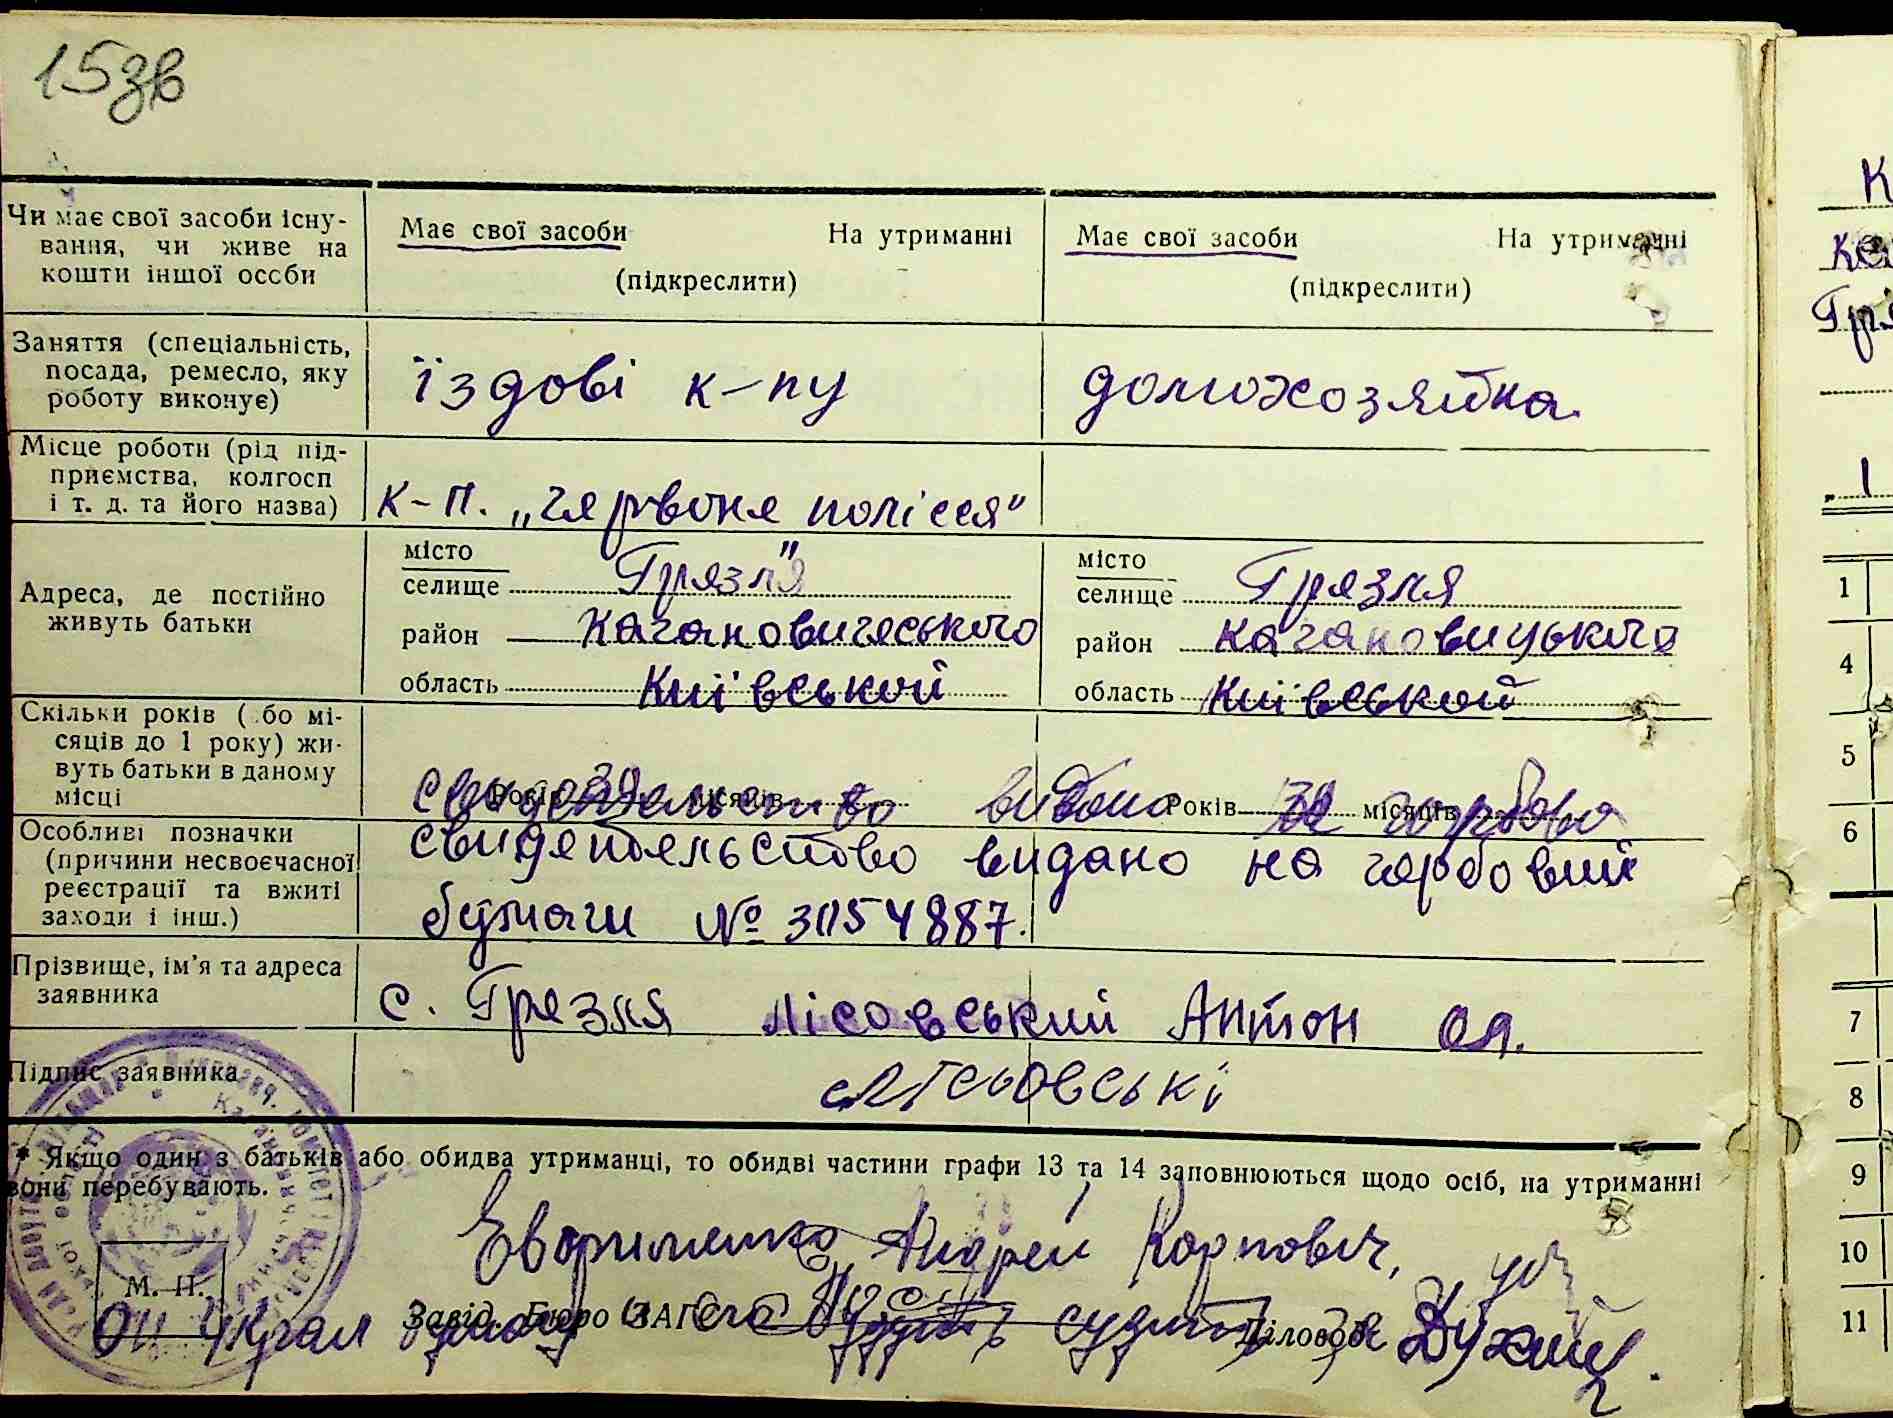 153в
Чи має свої засоби існу-
вання, чи живе на
кошти іншої особи
Має свої засоби На утриманні
(підкреслити)
Має свої засоби На утриманні
(підкреслити)
Заняття (спеціальність,
посада, ремесло, яку
роботу виконує)
їздові к-пу
домохозяйка
Місце роботи (рід під-
приємства, колгосп
і т. д. та його назва)
К-П. „червоне полісся"
Адреса, де постійно
живуть батьки
місто
селище Грязля
район Кагановичеського
область Київської
місто
селище Грязля
район Кагановицького
область Київської
Скільки років (або мі-
сяців до 1 року) жи-
вуть батьки в даному
місці
Років місяців
Років місяців
свидетельство видано
Особливі позначки
(причини несвоєчасної
реєстрації та вжиті
заходи і інш.)
свидетельство видано на гербовий
бумаги № 3054887.
Прізвище, ім'я та адреса
заявника
с. Грезля Лісовський Антон Ол.
Підпис заявника
Лісьовські
* Якщо один з батьків або обидва утриманці, то обидві частини графи 13 та 14 заповнюються щодо осіб, на утриманні
вони перебувають.
Андрей Карпович,
М. П.
Завід. Бюро ЗАГС Діловод
К
1
1
4
5
6
7
8
9
10
11